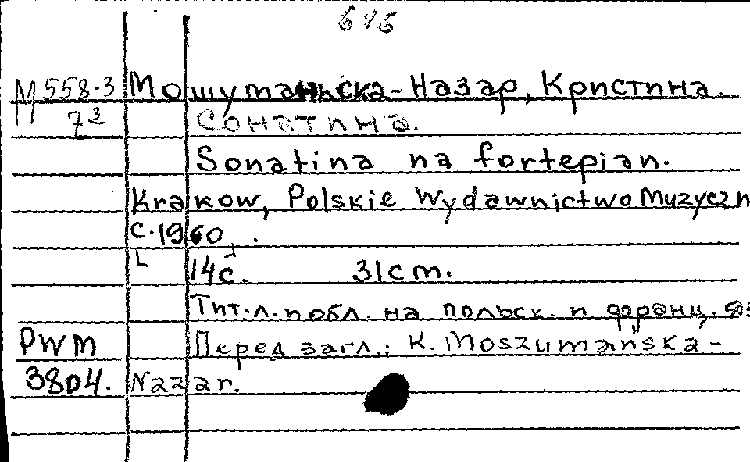 М 558.3 Мошуманьска-Назар, Кристина.
73 Сонатина.
Sonatina na fortepian.
Krakow, Polskie Wydawnictwo Muzyczn
c.1960.
14с. 31cm.
Тит.л. п обл. на польск. п франц.
PWM Перед загл.: K. Moszumańska-
3804. Nazar.